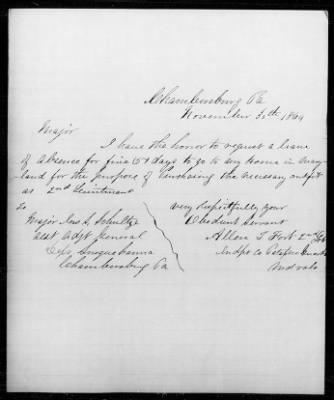 Chambersburg Pa
November 30th 1864
Major
I have the honor to request a leave
of absence for five (5) days to go to my home in Mary-
land for the purpose of purchasing the necessary outfit
as 2nd Lieutenant
Very Respectfully your
Obedient Servant
Allen T Fort 2nd
Indpt Co
To
Major Jno S Schultze
Asst Adjt General
Dept Susquehanna
Chambersburg Pa